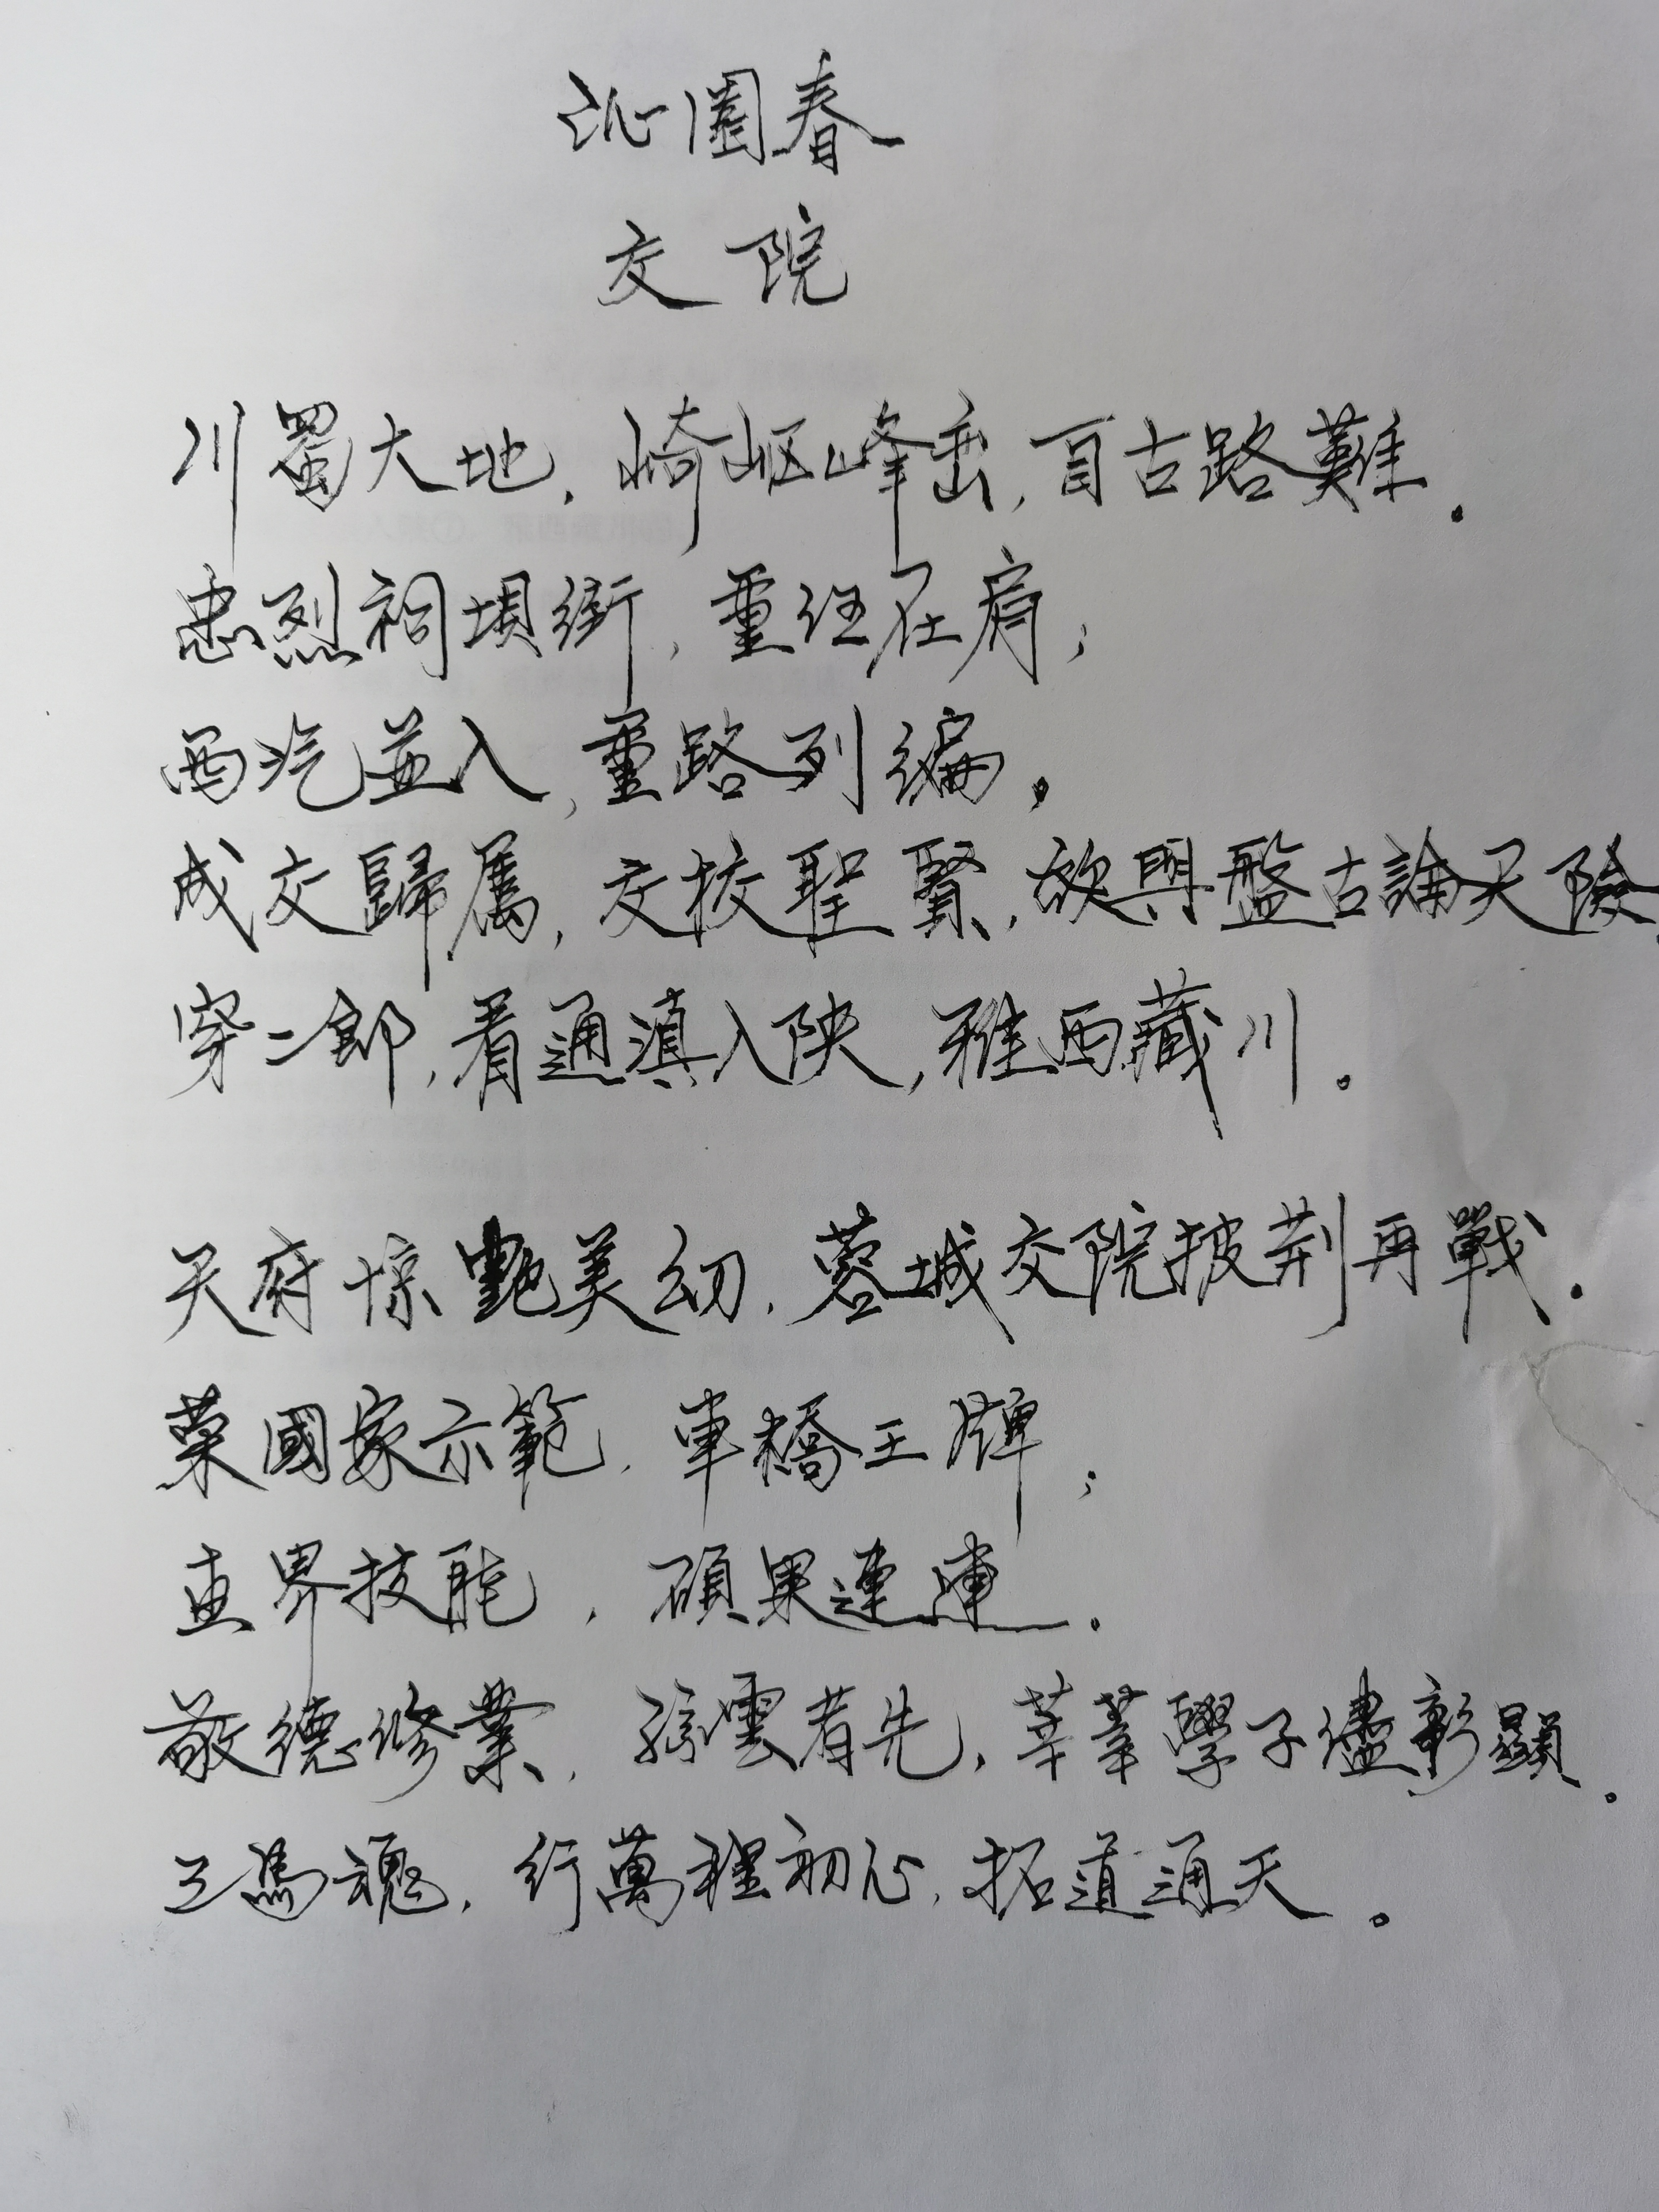 沁園春
交院
川蜀大地，崎岖峰峦，自古路難。
忠烈祠壩街，重任在肩；
西汽並入，重路列编。
成交歸属，交校聖賢，欲與盤古論天險。
穿二郎，看通滇入陕，雅西藏川。
天府惊艷美幻，蓉城交院披荆再戰。
菜國家示範，車橋王牌；
世界技能，碩果連連。
敬德修業，弦雲者先，莘莘學子儘彰顯。
工馬魂，行萬程初心，拓道通天。